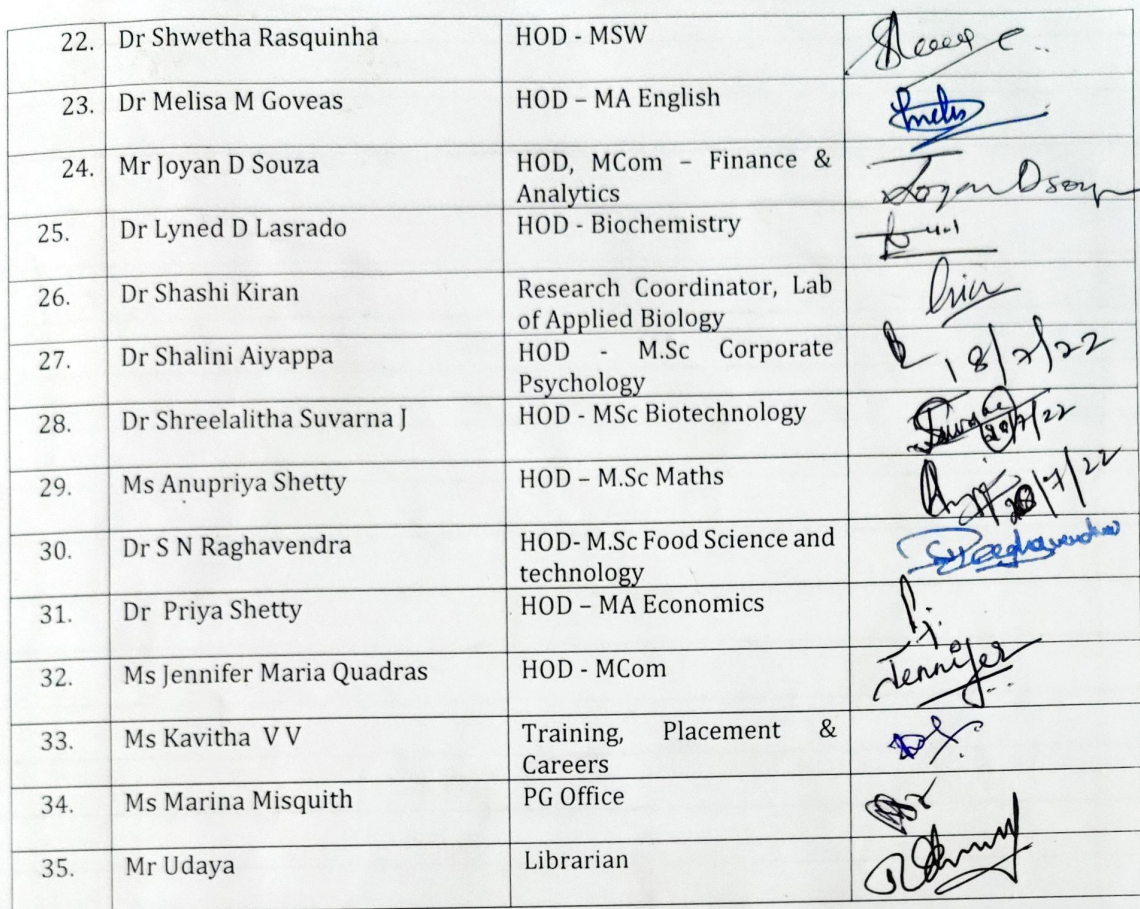 22. Dr Shwetha Rasquinha HOD - MSW
23. Dr Melisa M Goveas HOD – MA English
24. Mr Joyan D Souza HOD, MCom – Finance &
Analytics Joyan Dsouza
25. Dr Lyned D Lasrado HOD - Biochemistry
26. Dr Shashi Kiran Research Coordinator, Lab
of Applied Biology
27. Dr Shalini Aiyappa HOD - M.Sc Corporate
Psychology 18/7/22
28. Dr Shreelalitha Suvarna J HOD - MSc Biotechnology
29. Ms Anupriya Shetty HOD – M.Sc Maths
30. Dr S N Raghavendra HOD- M.Sc Food Science and
technology
31. Dr Priya Shetty HOD – MA Economics
32. Ms Jennifer Maria Quadras HOD - MCom Jennifer
33. Ms Kavitha V V Training, Placement &
Careers
34. Ms Marina Misquith PG Office
35. Mr Udaya Librarian